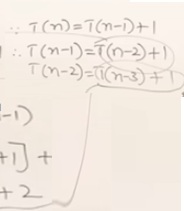 ∵ T(n)=T(n-1)+1
∴ T(n-1)=T(n-2)+1
T(n-2)=T(n-3)+1
-1)
+1] +
+ 2